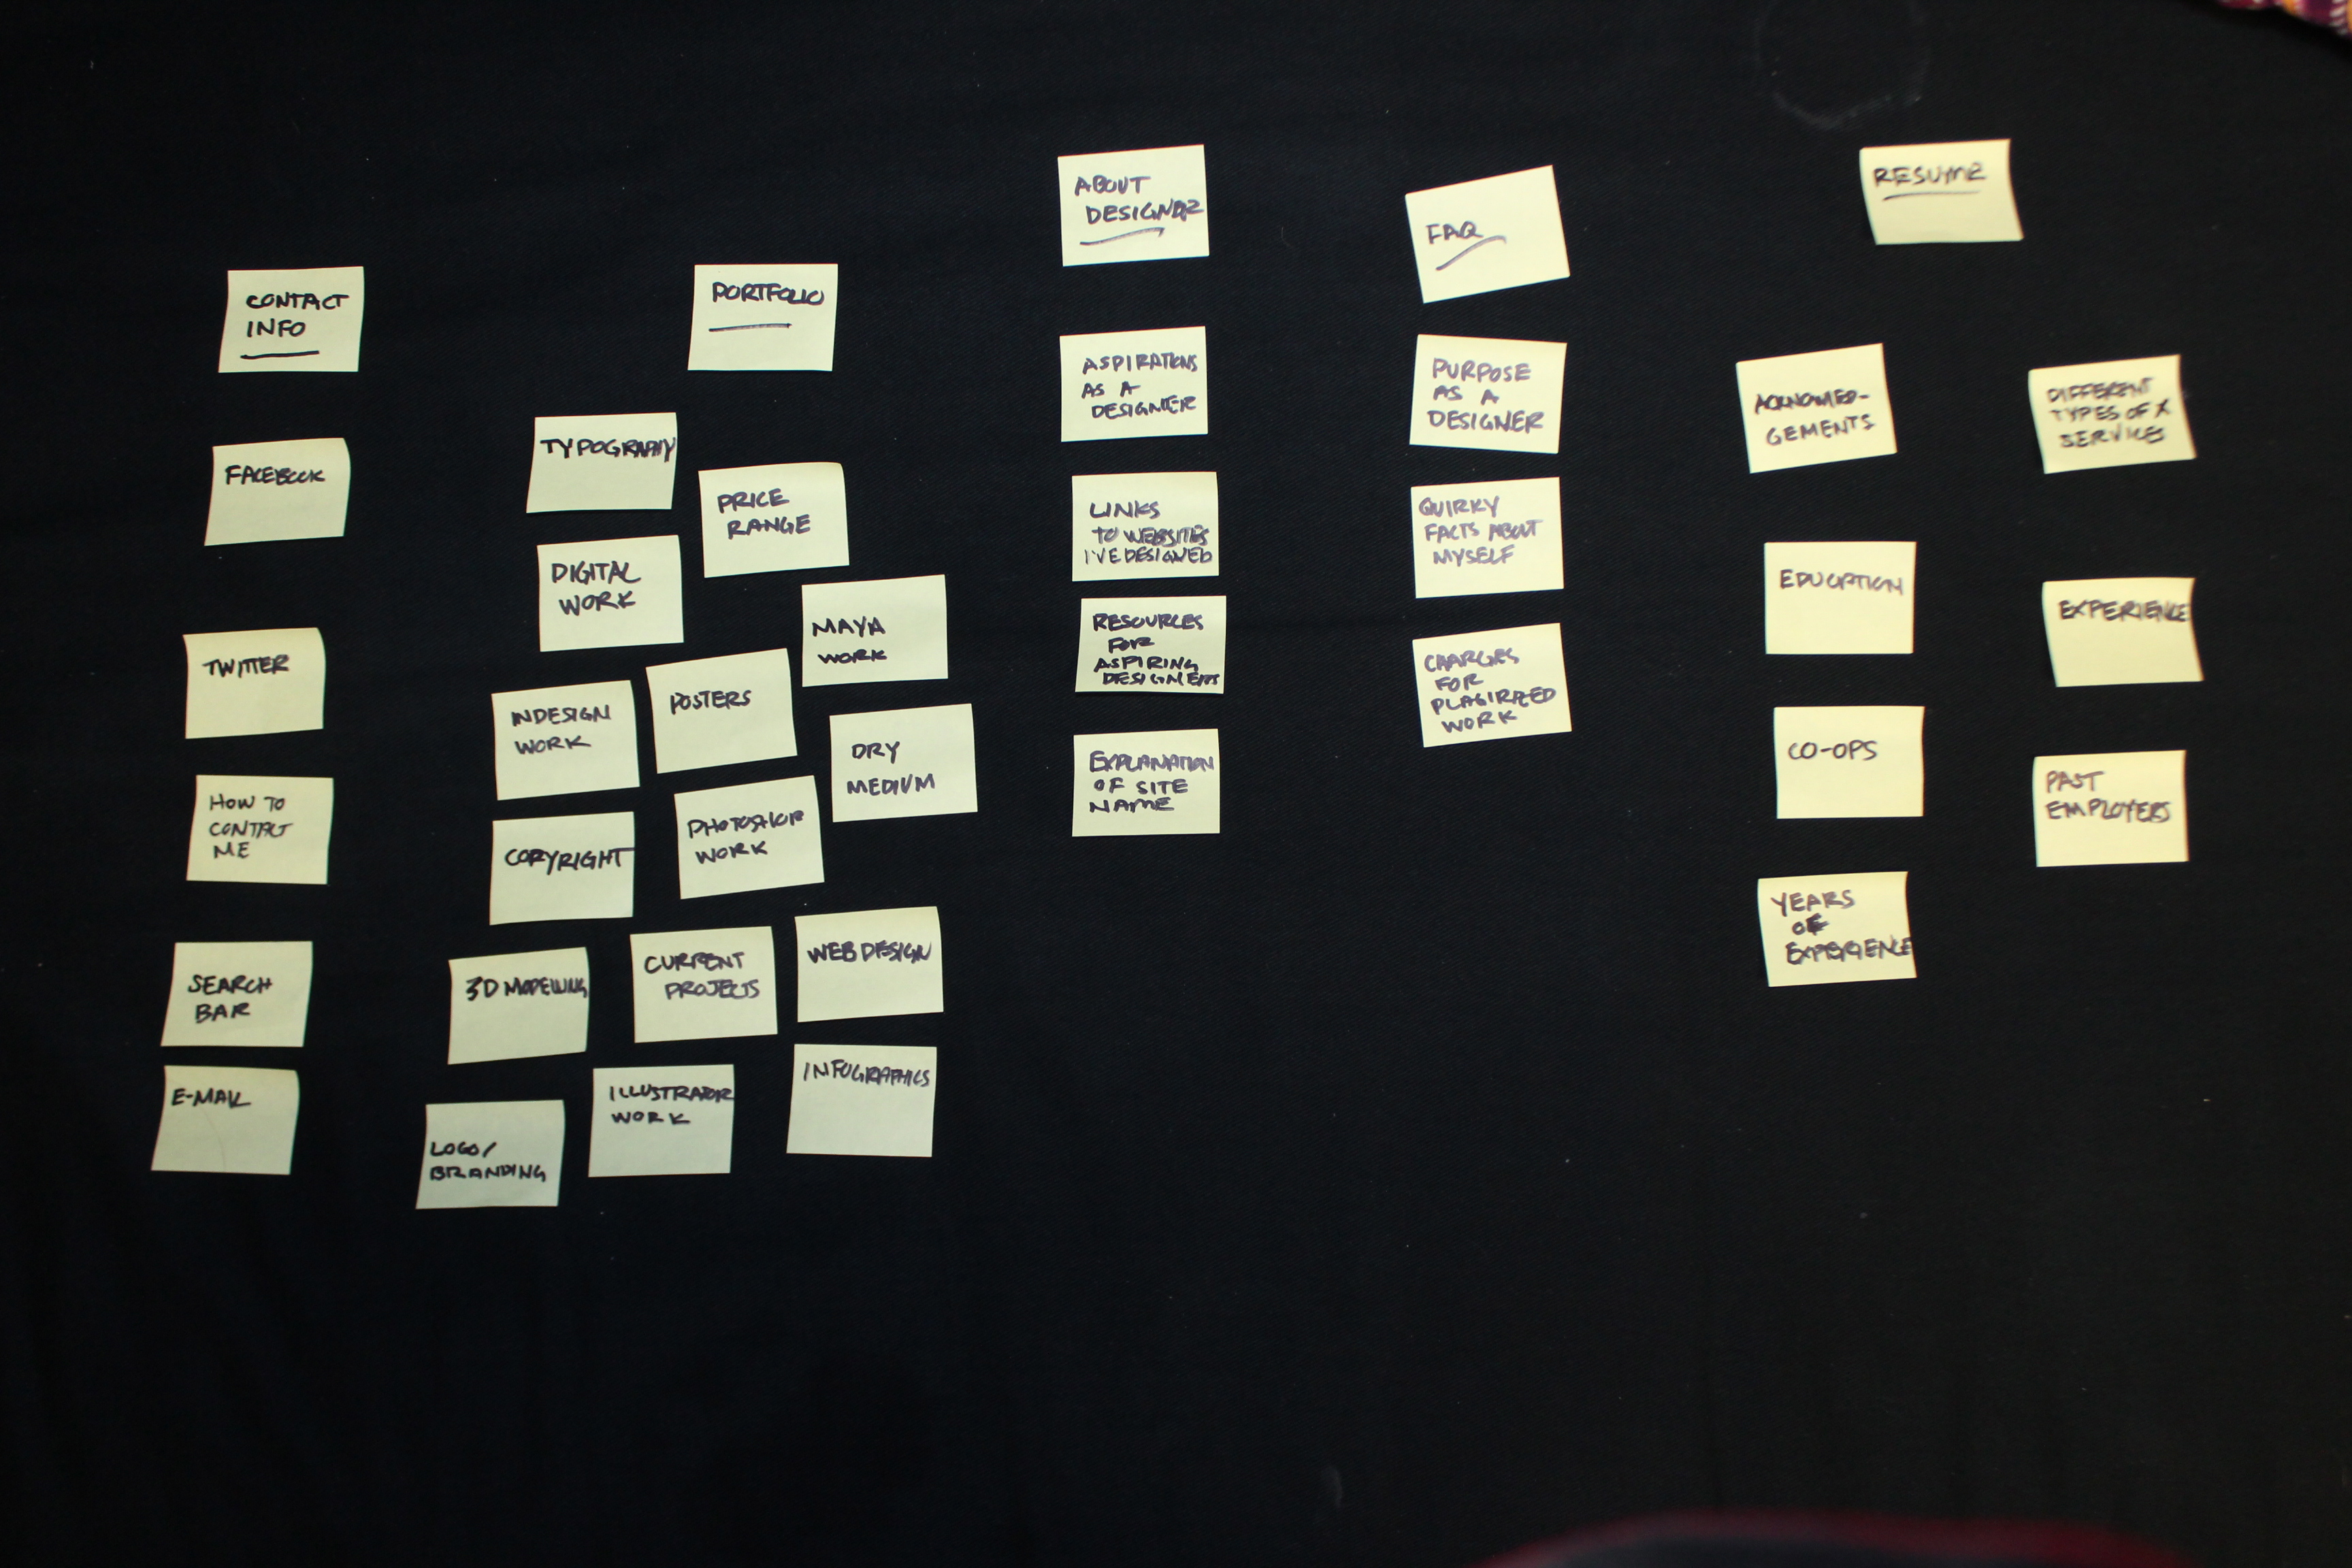 CONTACT
INFO
FACEBOOK
TWITTER
HOW TO
CONTACT
ME
SEARCH
BAR
E-MAIL
PORTFOLIO
TYPOGRAPHY
PRICE
RANGE
DIGITAL
WORK
MAYA
WORK
INDESIGN
WORK
POSTERS
DRY
MEDIUM
COPYRIGHT
PHOTOSHOP
WORK
3D MODELLING
CURRENT
PROJECTS
WEB DESIGN
LOGO/
BRANDING
ILLUSTRATOR
WORK
INFOGRAPHICS
ABOUT
DESIGNER
ASPIRATIONS
AS A
DESIGNER
LINKS
TO WEBSITES
I'VE DESIGNED
RESOURCES
FOR
ASPIRING
DESIGNERS
EXPLANATION
OF SITE
NAME
FAQ
PURPOSE
AS A
DESIGNER
QUIRKY
FACTS ABOUT
MYSELF
CHARGES
FOR
WORK
RESUME
ACKNOWLED-
GEMENTS
DIFFERENT
TYPES OF X
SERVICES
EDUCATION
EXPERIENCE
CO-OPS
PAST
EMPLOYERS
YEARS
OF
EXPERIENCE